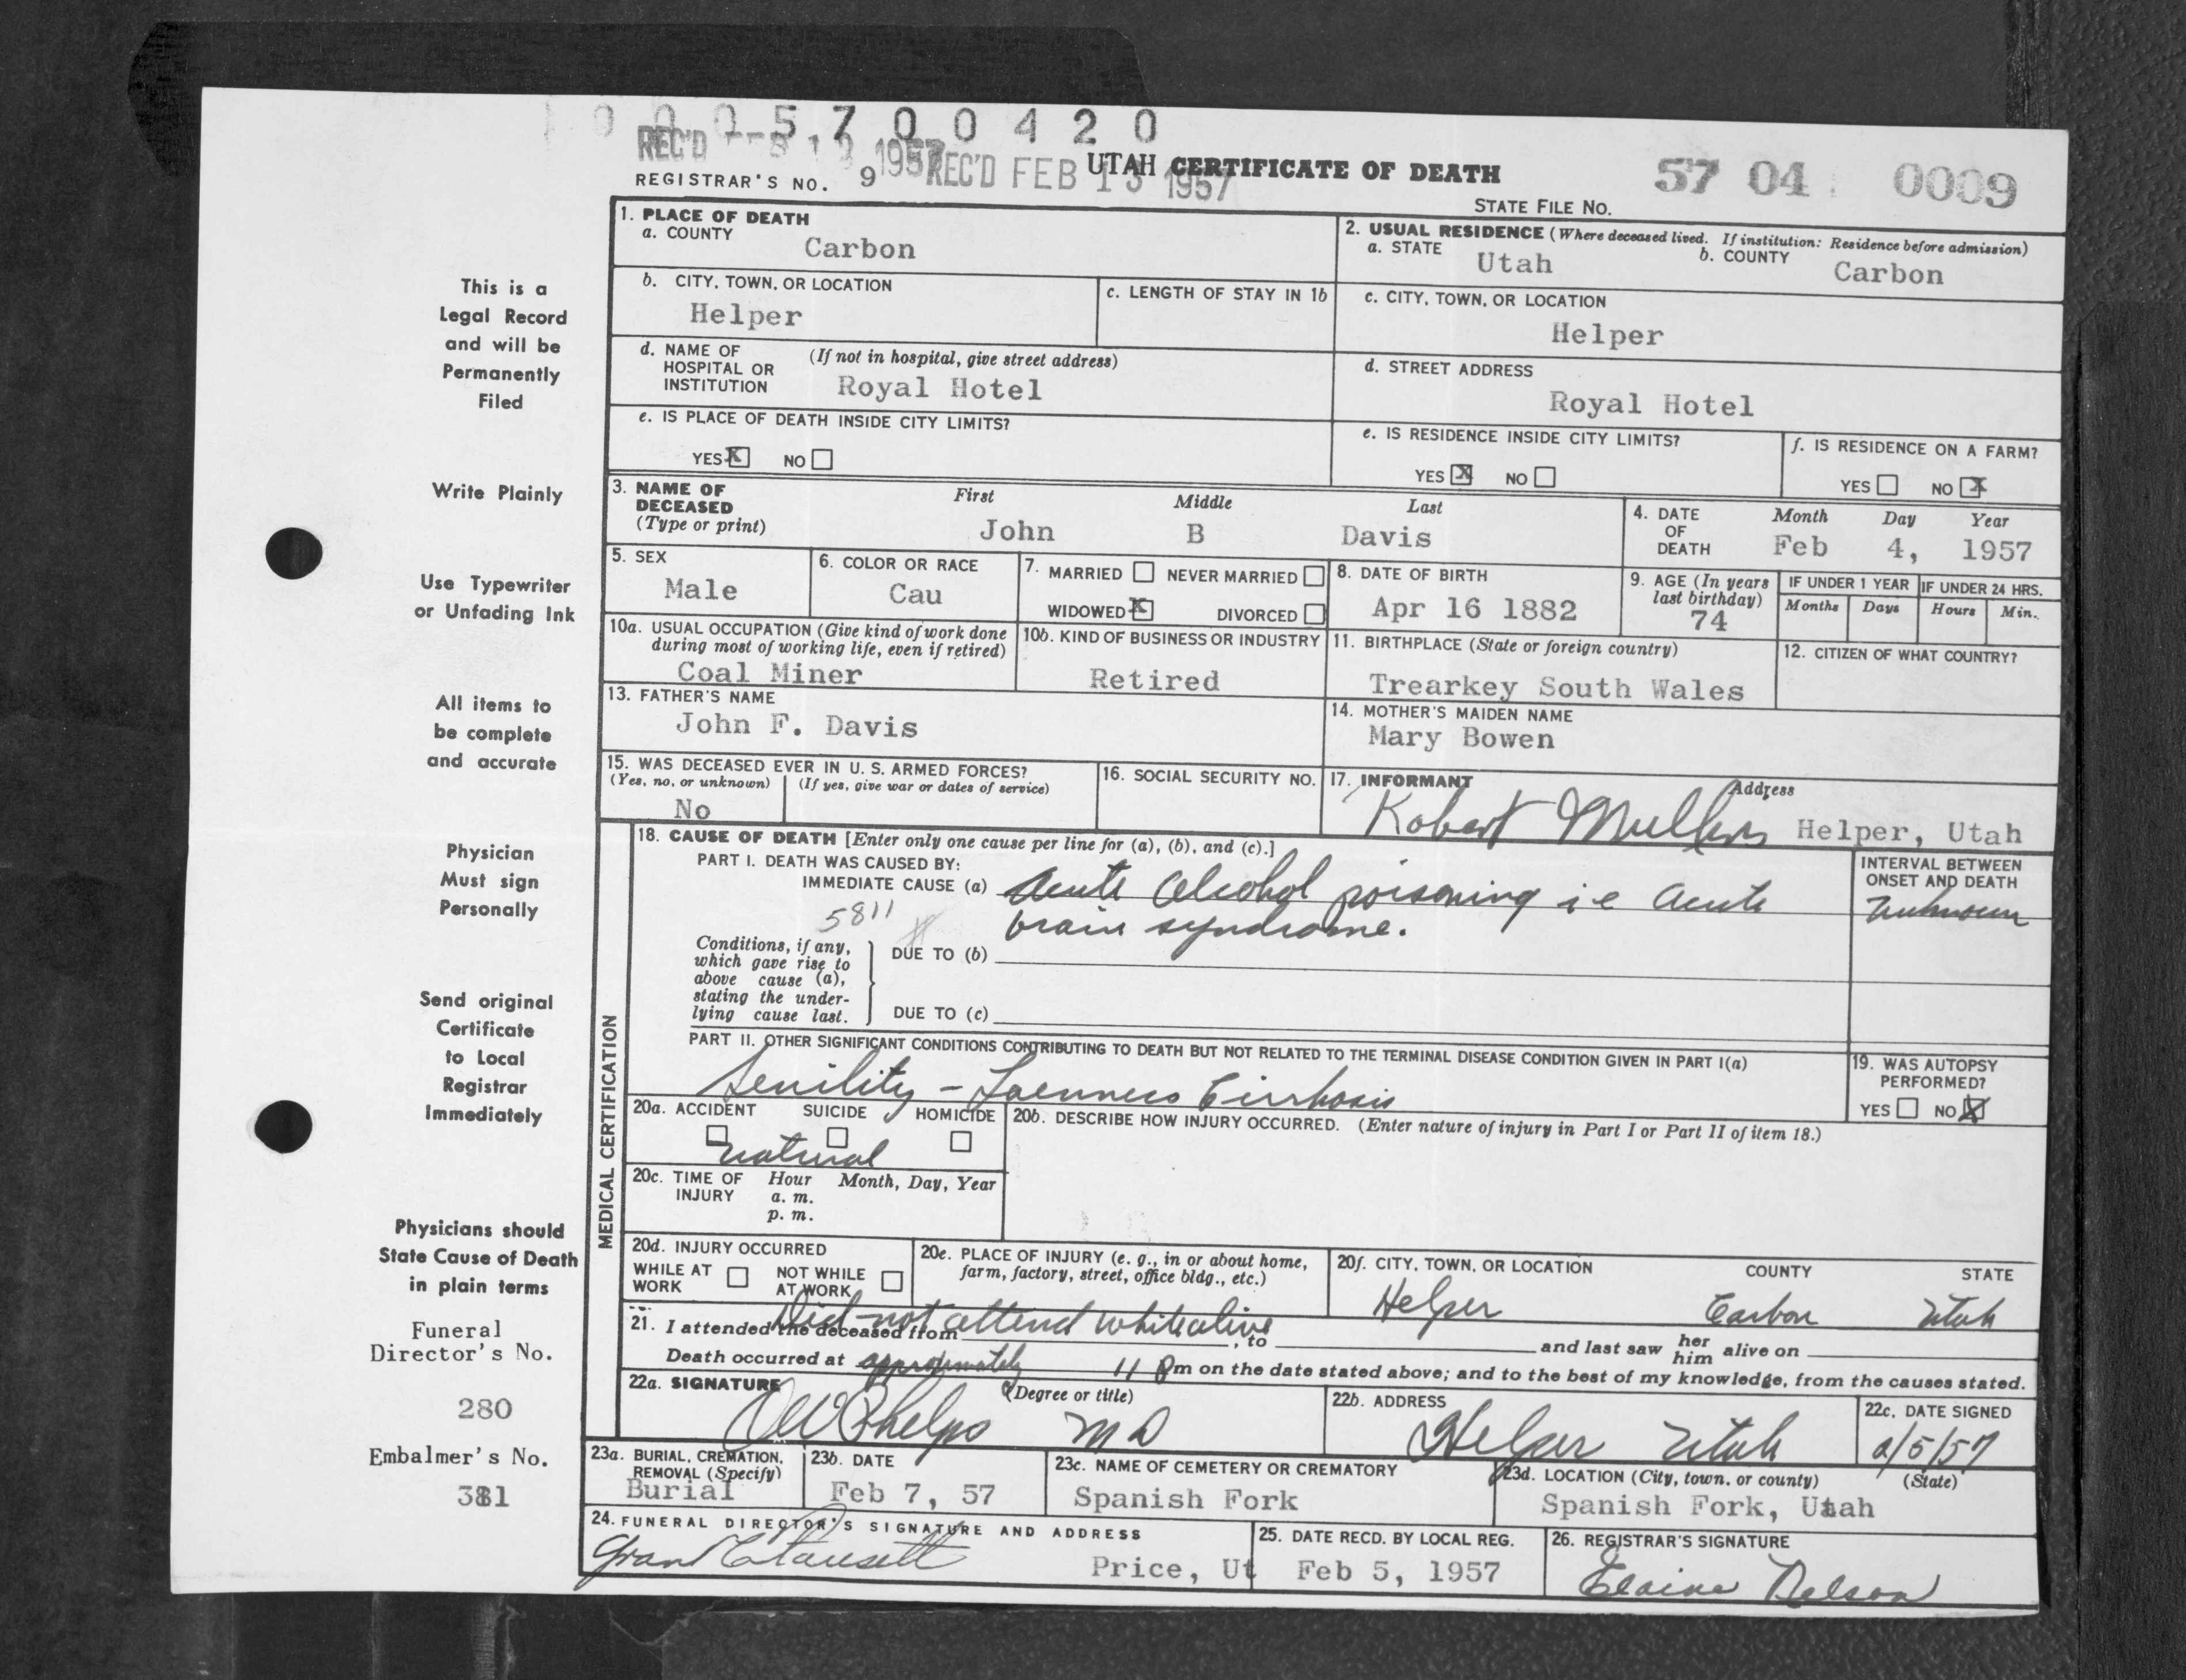 0005700420
REC'D FEB 13 1957 REC'D FEB 13 1957
UTAH CERTIFICATE OF DEATH
57 04 0009
REGISTRAR'S NO. 9
STATE FILE NO.
This is a
Legal Record
and will be
Permanently
Filed
Write Plainly
Use Typewriter
or Unfading Ink
All items to
be complete
and accurate
Physician
Must sign
Personally
Send original
Certificate
to Local
Registrar
Immediately
Physicians should
State Cause of Death
in plain terms
Funeral
Director's No.
280
Embalmer's No.
381
1. PLACE OF DEATH
a. COUNTY
Carbon
2. USUAL RESIDENCE (Where deceased lived. If institution: Residence before admission)
a. STATE Utah b. COUNTY Carbon
b. CITY, TOWN, OR LOCATION
Helper
c. LENGTH OF STAY IN 1b
c. CITY, TOWN, OR LOCATION
Helper
d. NAME OF HOSPITAL OR INSTITUTION (If not in hospital, give street address)
Royal Hotel
d. STREET ADDRESS
Royal Hotel
e. IS PLACE OF DEATH INSIDE CITY LIMITS?
YES X NO
e. IS RESIDENCE INSIDE CITY LIMITS?
YES X NO
f. IS RESIDENCE ON A FARM?
YES NO X
3. NAME OF DECEASED (Type or print)
First Middle Last
John B Davis
4. DATE OF DEATH
Month Day Year
Feb 4, 1957
5. SEX
Male
6. COLOR OR RACE
Cau
7. MARRIED NEVER MARRIED
WIDOWED X DIVORCED
8. DATE OF BIRTH
Apr 16 1882
9. AGE (In years last birthday)
74
IF UNDER 1 YEAR
Months Days
IF UNDER 24 HRS.
Hours Min.
10a. USUAL OCCUPATION (Give kind of work done during most of working life, even if retired)
Coal Miner
10b. KIND OF BUSINESS OR INDUSTRY
Retired
11. BIRTHPLACE (State or foreign country)
Trearkey South Wales
12. CITIZEN OF WHAT COUNTRY?
13. FATHER'S NAME
John F. Davis
14. MOTHER'S MAIDEN NAME
Mary Bowen
15. WAS DECEASED EVER IN U. S. ARMED FORCES?
(Yes, no, or unknown) (If yes, give war or dates of service)
No
16. SOCIAL SECURITY NO.
17. INFORMANT Address
Robert Mullins Helper, Utah
MEDICAL CERTIFICATION
18. CAUSE OF DEATH [Enter only one cause per line for (a), (b), and (c).]
PART I. DEATH WAS CAUSED BY:
IMMEDIATE CAUSE (a) Acute alcohol poisoning i e acute
brain syndrome.
5811
INTERVAL BETWEEN ONSET AND DEATH
Unknown
Conditions, if any, which gave rise to above cause (a), stating the underlying cause last.
DUE TO (b)
DUE TO (c)
PART II. OTHER SIGNIFICANT CONDITIONS CONTRIBUTING TO DEATH BUT NOT RELATED TO THE TERMINAL DISEASE CONDITION GIVEN IN PART I(a)
Senility - Laennecs Cirrhosis
19. WAS AUTOPSY PERFORMED?
YES NO X
20a. ACCIDENT SUICIDE HOMICIDE
natural
20b. DESCRIBE HOW INJURY OCCURRED. (Enter nature of injury in Part I or Part II of item 18.)
20c. TIME OF INJURY Hour Month, Day, Year
a. m.
p. m.
20d. INJURY OCCURRED
WHILE AT WORK NOT WHILE AT WORK
20e. PLACE OF INJURY (e. g., in or about home, farm, factory, street, office bldg., etc.)
20f. CITY, TOWN, OR LOCATION COUNTY STATE
Helper Carbon Utah
Did not attend while alive
21. I attended the deceased from , to and last saw her him alive on
Death occurred at approximately 11 Pm on the date stated above; and to the best of my knowledge, from the causes stated.
22a. SIGNATURE (Degree or title)
OW Phelps MD
22b. ADDRESS
Helper Utah
22c. DATE SIGNED
2/5/57
23a. BURIAL, CREMATION, REMOVAL (Specify)
Burial
23b. DATE
Feb 7, 57
23c. NAME OF CEMETERY OR CREMATORY
Spanish Fork
23d. LOCATION (City, town, or county) (State)
Spanish Fork, Utah
24. FUNERAL DIRECTOR'S SIGNATURE AND ADDRESS
Price, Ut
25. DATE RECD. BY LOCAL REG.
Feb 5, 1957
26. REGISTRAR'S SIGNATURE
Elaine Nelson